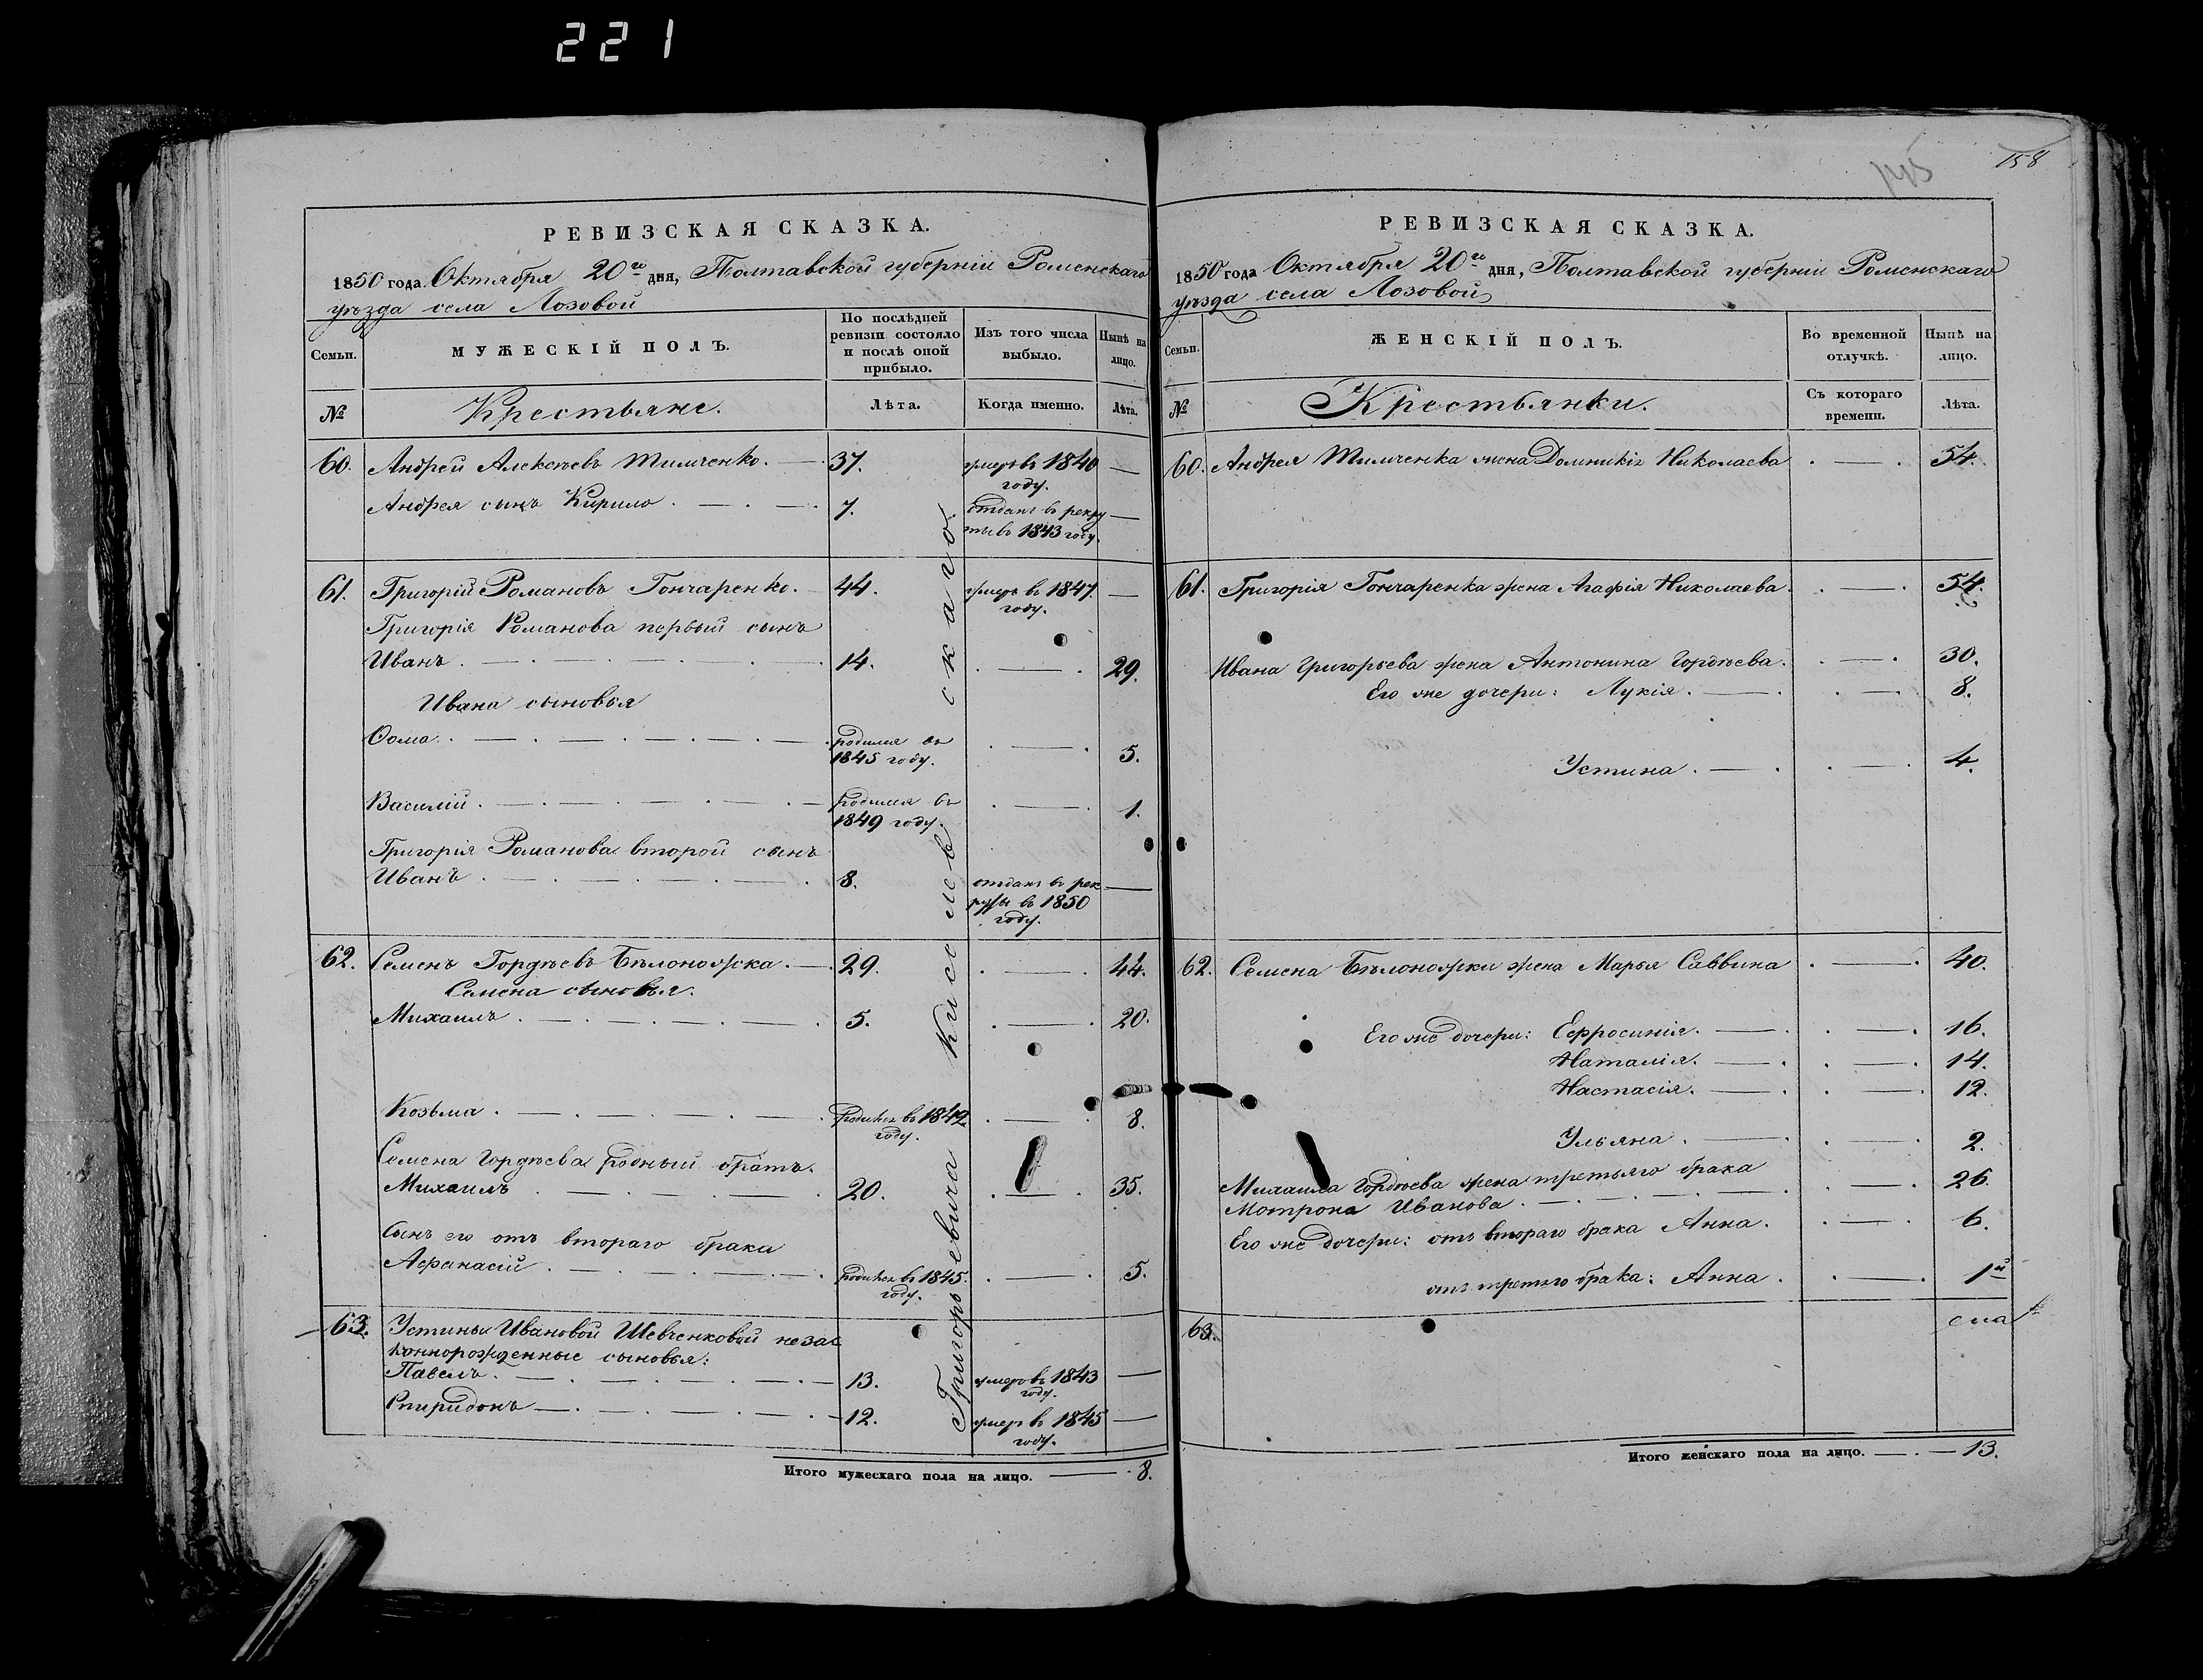 221
145
158
РЕВИЗСКАЯ СКАЗКА.
1850 года Октября 20го дня, Полтавской губерніи Роменскаго
уѣзда села Лозовой
Семьи.
МУЖЕСКІЙ ПОЛЪ.
По послѣдней
ревизіи состояло
и послѣ оной
прибыло.
Изъ того числа
выбыло.
Нынѣ на
лицо.
№
Крестьяне.
Лѣта.
Когда именно.
Лѣта.
60. Андрей Алексѣевъ Тимченко. — 37. умеръ въ 1840 —
году.
Андрея сынъ Кирило . — . — . 7. отданъ въ рекру —
ты въ 1843 году.
61. Григорій Романовъ Гончаренко. — 44. умеръ въ 1847 —
году.
Григорія Романова первый сынъ
Иванъ . — . — . — . 14. . — . 29.
Ивана сыновья
Ѳома . — . — . — . родился въ . — . 5.
1845 году.
Василій . — . — . — родился въ . — . 1.
1849 году.
Григорія Романова второй сынъ
Иванъ . — . — . — . 8. отданъ въ рек —
руты въ 1850
году.
62. Семенъ Гордѣевъ Бѣлоножка . — 29. . — . 44.
Семена сыновья.
Михаилъ . — . — . — . 5. . — . 20.
Козьма . — . — . — . родился въ 1842 . — . 8.
году.
Семена Гордѣева родный братъ.
Михаилъ . — . — . — . 20. . — . 35.
Сынъ его отъ втораго брака
Афанасій . — . — . — . родился въ 1845. . — . 5.
году.
63. Устиньи Ивановой Шевченковой неза
коннорожденные сыновья:
Павелъ . — . — . — 13. умеръ въ 1843 —
году.
Спиридонъ — . — . — . — 12. умеръ въ 1845 —
году.
Григорьевича Киселевскаго.
Итого мужескаго пола на лицо. — 8.
РЕВИЗСКАЯ СКАЗКА.
1850 года Октября 20го дня, Полтавской губерніи Роменскаго
уѣзда села Лозовой
Семьи.
ЖЕНСКІЙ ПОЛЪ.
Во временной
отлучкѣ.
Нынѣ на
лицо.
№
Крестьянки.
Съ котораго
времени.
Лѣта.
60. Андрея Тимченка жена Домникія Николаева . — . 54.
61. Григорія Гончаренка жена Агафія Николаева . — . 54.
Ивана Григорьева жена Антонина Гордѣева . — . 30.
Его же дочери: Лукія . — . — . 8.
Устина . — . — . 4.
62. Семена Бѣлоножки жена Марья Саввина . — . 40.
Его же дочери: Ефросинія . — . — . 16.
Наталія . — . — . 14.
Настасія . — . — . 12.
Ульяна . — . — . 2.
Михаила Гордѣева жена третьяго брака
Мотрона Иванова . — . — . — . 26.
Его же дочери: отъ втораго брака Анна . — . 6.
отъ третьяго брака: Анна . — . 1й
63.
Итого женскаго пола на лицо. — . — 13.